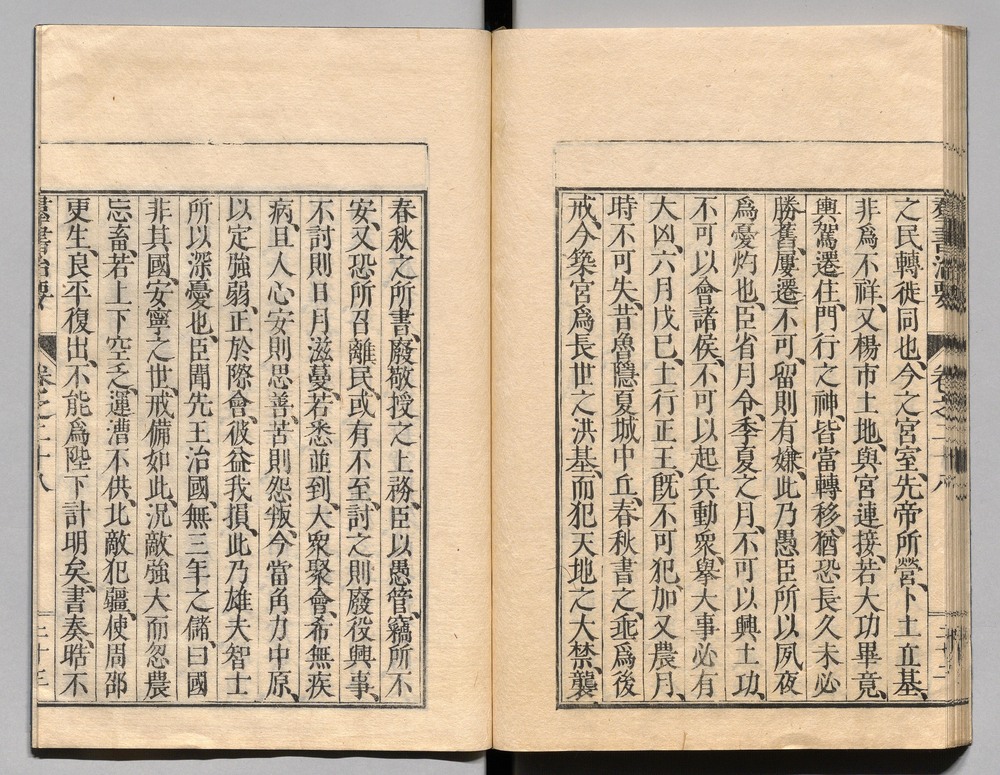 羣書治要 卷之二十八
之民轉徙同也、今之宮室、先帝所營、卜土立基、
非爲不祥、又楊市土地、與宮連接、若大功畢竟、
輿駕遷住、門行之神、皆當轉移、猶恐長久未必
勝舊、屢遷不可、留則有嫌、此乃愚臣所以夙夜
爲憂灼也、臣省月令、季夏之月、不可以興土功、
不可以會諸侯、不可以起兵動衆、擧大事必有
大凶、六月戊巳、土行正王、旣不可犯、加又農月、
時不可失、昔魯隱夏城中丘、春秋書之、乖爲後
戒、今築宮爲長世之洪基、而犯天地之大禁、襲
春秋之所書、廢敬授之上務、臣以愚管、竊所不
安、又恐所召離民、或有不至、討之則廢役興事、
不討則日月滋蔓、若悉並到、大衆聚會、希無疾
病、且人心安則思善、苦則怨叛、今當角力中原、
以定強弱、正於際會、彼益我損、此乃雄夫智士
所以深憂也、臣聞先王治國、無三年之儲、曰國
非其國、安寧之世、戒備如此、況敵強大而忽農
忘畜、若上下空乏、運漕不供、北敵犯疆、使周邵
更生、良平復出、不能爲陛下計明矣、書奏、晧不
羣書治要 卷之二十八 三十三